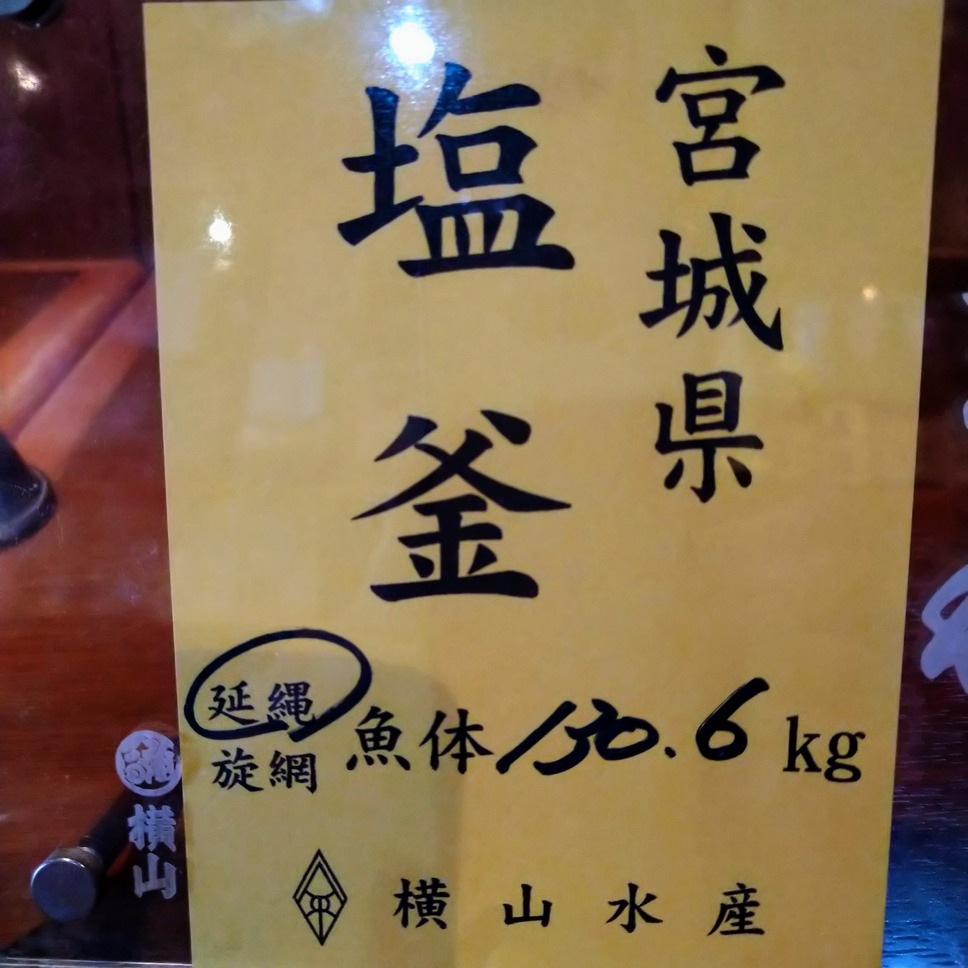 宮城県
塩釜
延縄
旋網
魚体 130.6 kg
横山水産
横山